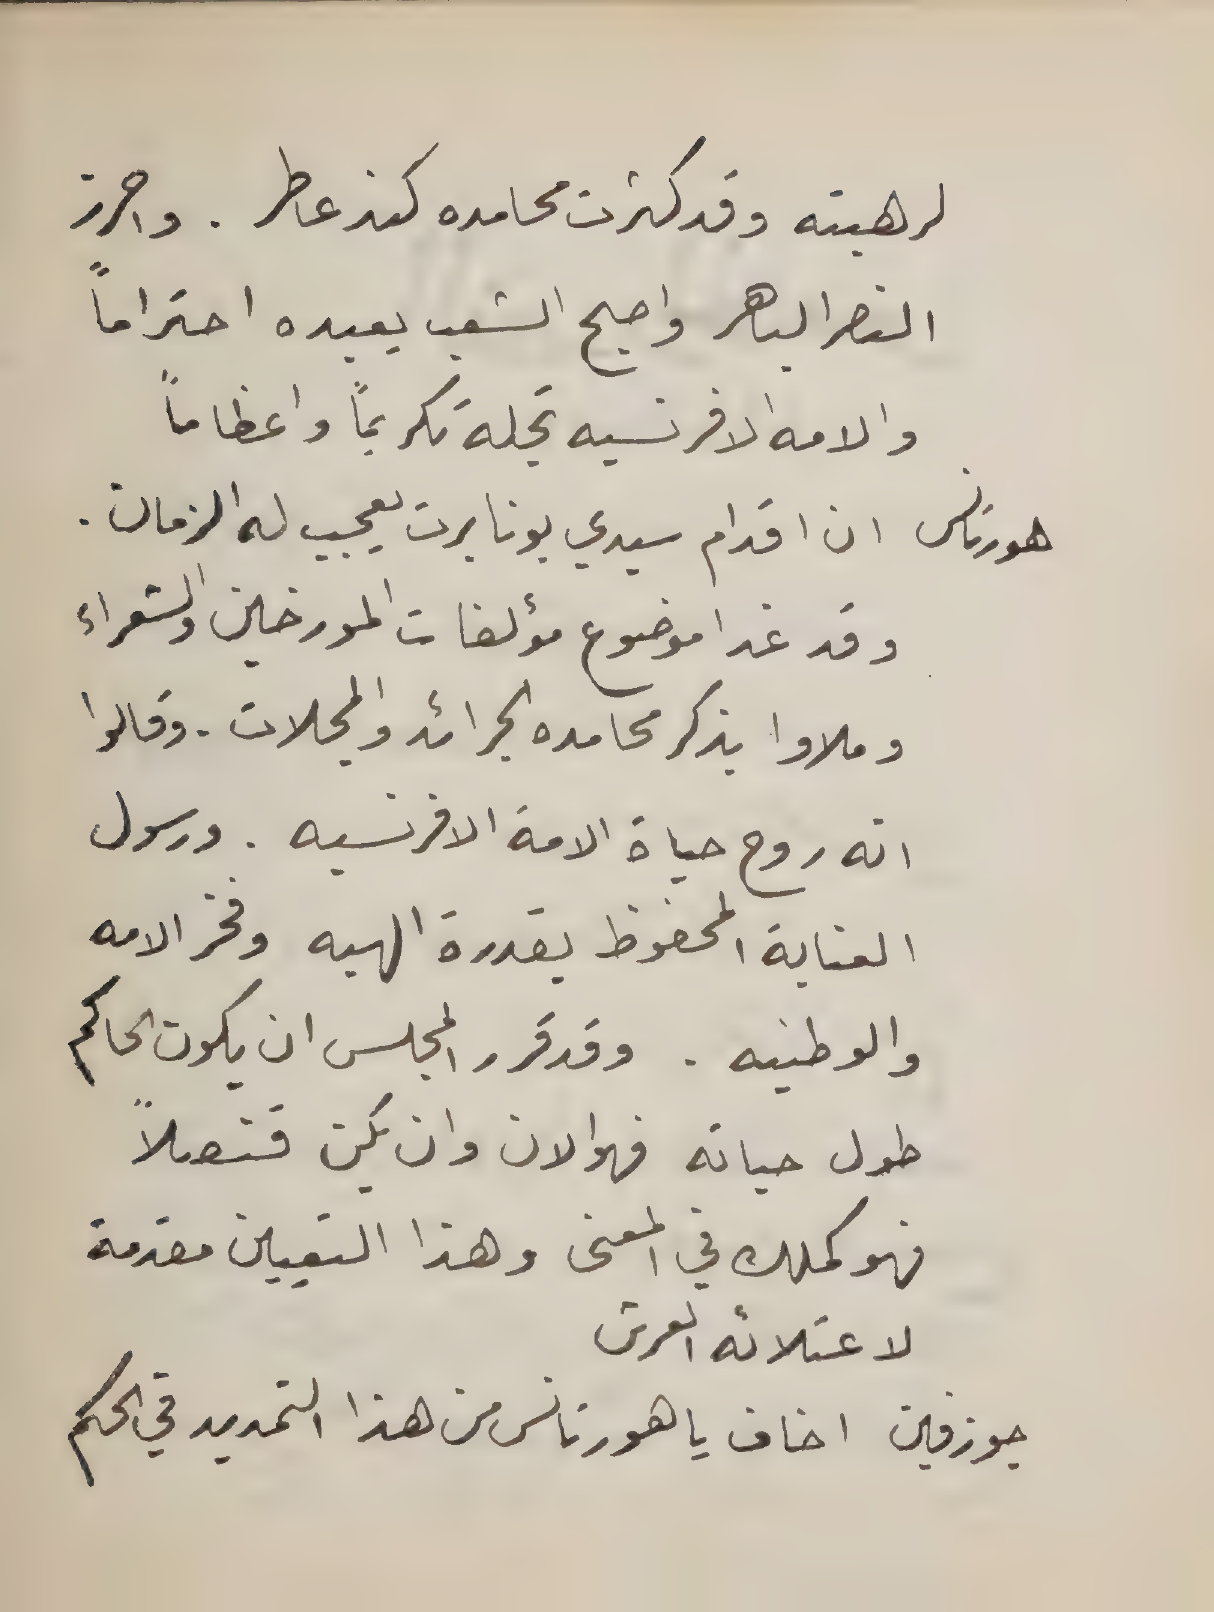 لرهبته وقد كثرت محامده كند عاطر . واحرز
النصر الباهر واصبح الشعب يعبده احتراماً
والامه الافرنسيه تجله تكريماً واعظاماً
هورتانس ان اقدام سيدي بونابرت يعجب له الزمان .
وقد غدا موضوع مؤلفات المورخين والشعراء
وملاوا بذكر محامده الجرائد والمجلات . وقالوا
انه روح حياة الامة الافرنسيه . ورسول
العناية المحفوظ بقدرة الهيه وفخر الامه
والوطنيه . وقد قرر المجلس ان يكون الحاكم
طول حياته فهو الان وان يكن قنصلاً
فهو كملك في المعنى وهذا التعيين مقدمة
لاعتلائه العرش
جوزفين اخاف يا هورتانس من هذا التمديد في الحكم